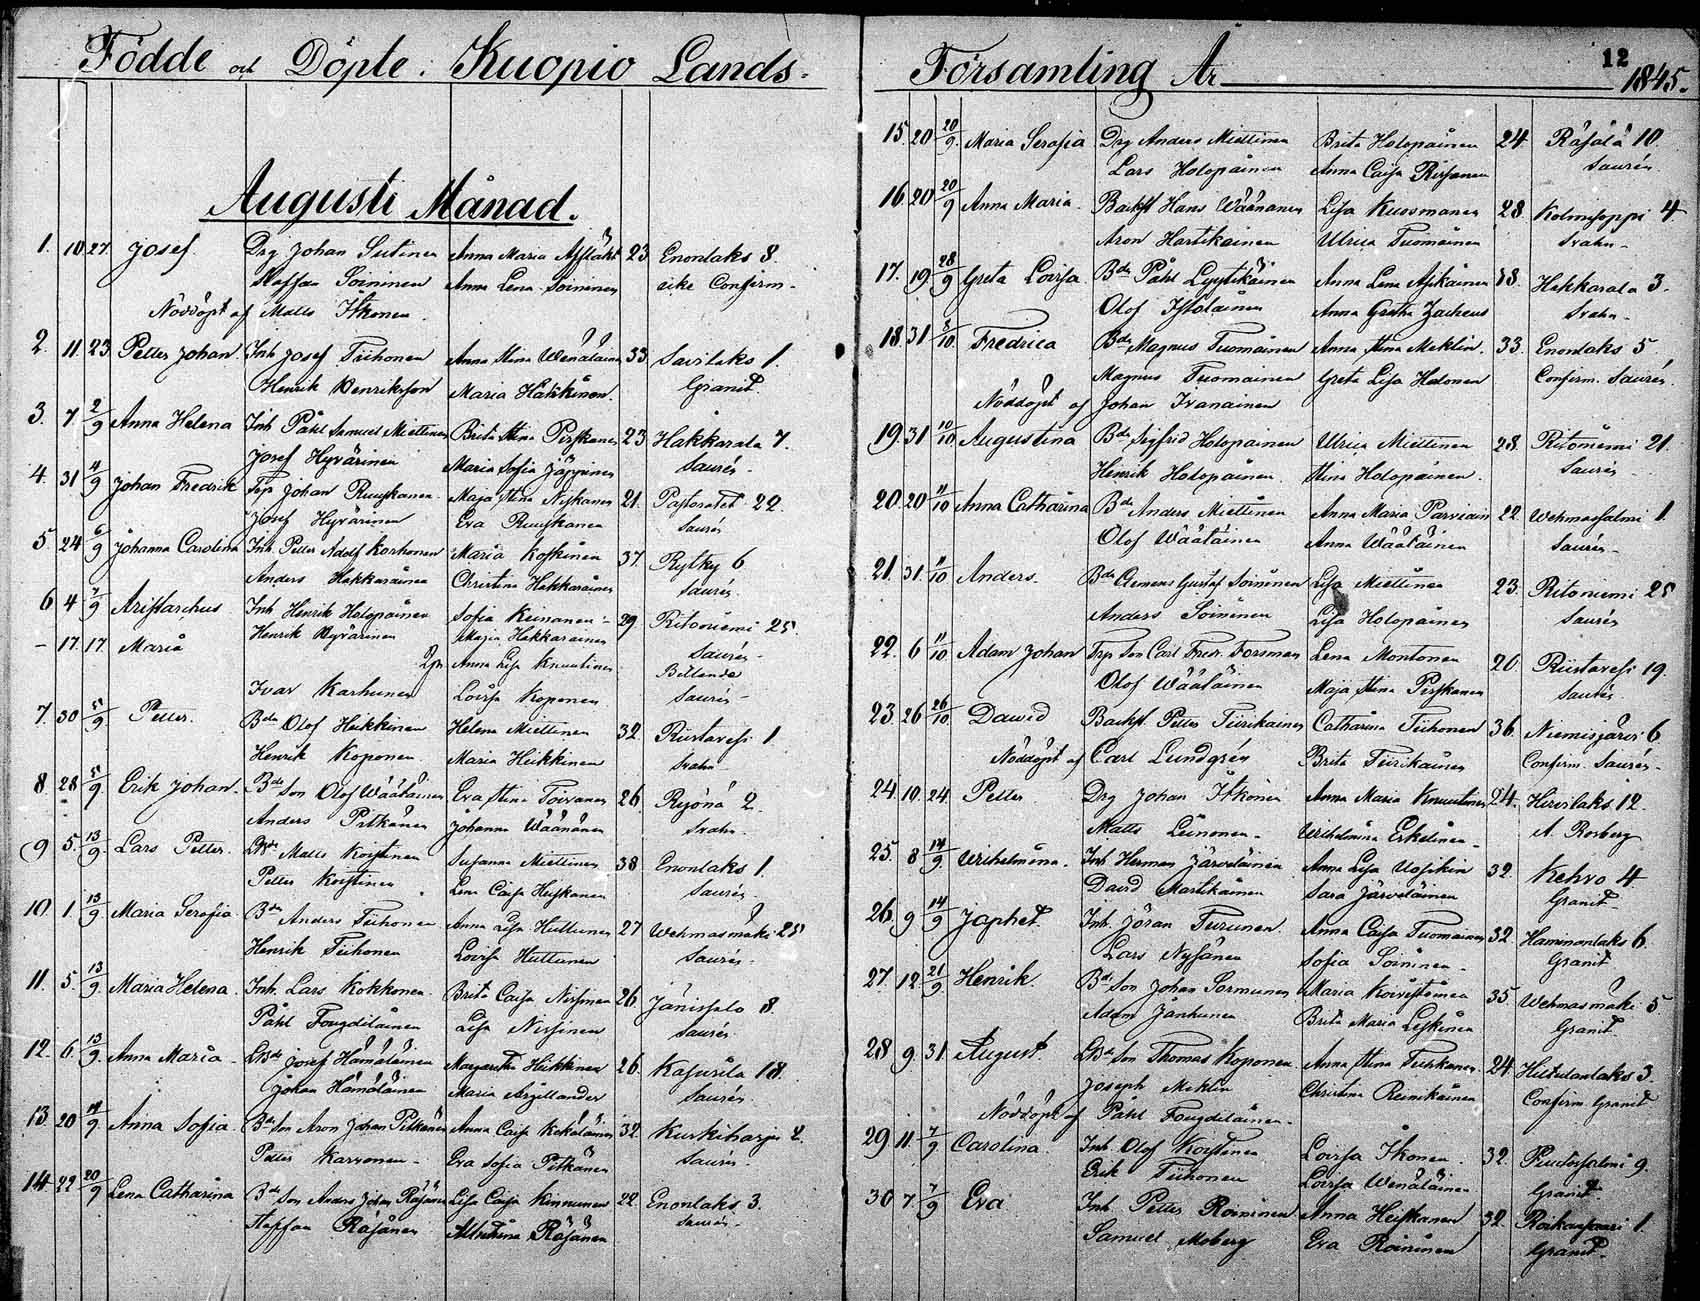 Födde och Döpte. Kuopio Lands-
Augusti Månad.
1. 10 27 Josef Drg Johan Sutinen Anna Maria Asplakt 23 Enonlaks 8.
Staffan Soininen Anna Lena Soininen eike Confirm-
Nöddöpt af Matts Itkonen
2. 11. 23 Petter Johan. Inh Josef Tiihonen Anna Stina Wenäläinen 33 Savilaks 1.
Henrik Henriksson Maria Häkkinen. Granit.
3. 7 2/9 Anna Helena Inh Påhl Samuel Miettinen Brita Stina Pirskanen 23 Hakkarala 7.
Josef Hyvärinen Maria Sofia Jäppinen Saurén-
4. 31 4/9 Johan Fredrik Torp Johan Ruuskanen Maja Stina Niskanen 21. Pastoratet 22.
Josef Hyvärinen Eva Ruuskanen Saurén
5. 24 6/9 Johanna Carolina Inh. Petter Adolf Korhonen Maria Koskinen 37. Rytky 6
Anders Hakkarainen Christina Hakkarainen Saurén
6 4 7/9 Aristarchus Inh Henrik Holopainen Sofia Keinanen 29. Ritoniemi 25.
Henrik Hyvärinen Maja Hakkarainen Saurén-
- 17. 17. Maria Pgn Anna Lisa Knuutinen Bellande
Ivar Karhunen Lovisa Koponen Saurén-
7. 30 5/9 Petter. Bde Olof Heikkinen Helena Miettinen 32. Riistavesi 1
Henrik Koponen Maria Heikkinen Svahn-
8 28 5/9 Erik Johan. Bde Son Olof Wäätäinen Eva Stina Toivanen 26. Ryönä 2.
Anders Pitkänen Johanna Wäänänen Svahn.
9 5. 13/9. Lars Petter. LBde Matts Koistinen Susanna Miettinen 38 Enonlaks 1.
Petter Koistinen Lena Caisa Heiskanen Saurén-
10. 1. 13/9 Maria Serafia Bde Anders Tiihonen Anna Lisa Huttunen 27 Wehmasmäki 25
Henrik Tiihonen Lovisa Huttunen Saurén-
11. 5. 13/9. Maria Helena. Inh. Lars Kokkonen Brita Caisa Nissinen 26 Jänissalo 8.
Påhl Fougdilainen Lisa Nissinen Saurén
12. 6. 13/9. Anna Maria LBde Josef Hämäläinen Margaretha Heikkinen 26. Kasurila 18.
Johan Hämäläinen Maria Argillander Saurén.
13. 20 14/9 Anna Sofia. Bde Son Aron Johan Pitkänen Anna Caisa Kekäläinen 32. Kurkiharju 2.
Petter Karvonen Eva Sofia Pitkänen Saurén-
14 22 20/9 Lena Catharina Bde Son Anders Johan Räsänen Lisa Caisa Kinnunen 22 Enonlaks 3.
Staffan Räsänen Räsänen Saurén-
Församling År 12 1845.
15. 20 20/9. Maria Serafia Drg Anders Miettinen Brita Holopainen 24 Räsälä 10.
Lars Holopainen Anna Caisa Rissanen Saurén
16. 20 20/9 Anna Maria. Backst Hans Wäänänen Lisa Kuosmanen 28. Kolmisoppi 4
Aron Hartikainen Ulrica Tuomainen Svahn-
17. 19. 28/9 Greta Lovisa Bde Påhl Lyytikäinen Anna Lena Asikainen 38. Hakkarala 3.
Olof Ihalainen Anna Greta Zacheus Svahn-
18. 31 8/10. Fredrica Bde Magnus Tuomainen Anna Stina Meklin. 33. Enonlaks 5
Magnus Tuomainen Greta Lisa Halonen Confirm. Saurén.
Nöddöpt af Johan Ivanainen
19. 31 10/10 Augustina Bde Sigfrid Holopainen Ulrica Miettinen 28. Ritoniemi 21.
Henrik Holopainen. Stina Holopainen. Saurén
20. 20 11/10 Anna Catharina Bde Anders Miettinen Anna Maria Parviain 22. Wehmassalmi 1.
Olof Wäätäinen Anna Wäätäinen Saurén-
21. 31. 11/10 Anders. Bde Clemens Gustaf Soininen Lisa Miettinen 23. Ritoniemi 25
Anders Soininen Lisa Holopainen Saurén
22. 6 11/10 Adam Johan Torp Son Carl Fredr. Forsman Lena Montonen 20. Riistavesi 19.
Olof Wäätäinen Maja Stina Pirskanen Saurén
23. 26 26/10. David Backst Petter Tiirikainen Catharina Tiihonen 36. Niemisjärvi 6
Nöddöpt af Carl Lundgrén Brita Tiirikainen Confirm. Saurén-
24. 19. 24. Petter Drg Johan Itkonen Anna Maria Knuutinen 24. Hirvilaks 12.
Matts Leinonen- Wilhelmina Eskelinen- A. Rosberg
25. 8 14/9. Wilhelmina. Inh Herman Järveläinen Anna Lisa 32. Kehvo 4
David Martikainen Sara Järveläinen Granit-
26. 9 14/9 Japhet. Inh. Jöran Turunen. Anna Caisa Tuomainen 32 Haminanlaks 6.
Lars Nysänen Sofia Soininen- Granit
27. 12 21/9. Henrik. Bd Son Johan Sormunen Maria Koivistoinen 35 Wehmasmäki 5
Adam Janhunen Brita Maria Leskinen Granit
28 9. 31. August. LBd Son Thomas Koponen Anna Stina Tuiskanen 24. 3.
Joseph Meklin Christina Reinikainen Confirm. Granit
Nöddöpt af Påhl Fougdilainen-
29 11 7/9. Carolina. Inh. Olof Koistinen Lovisa Ikonen. 32. Puutossalmi 9.
Erik Tiihonen Lovisa Wenäläinen Granit.
30. 7. 7/9 Eva Inh Petter Roininen Anna Heiskanen 32. Roikansaari 1
Samuel Moberg Eva Roininen Granit-